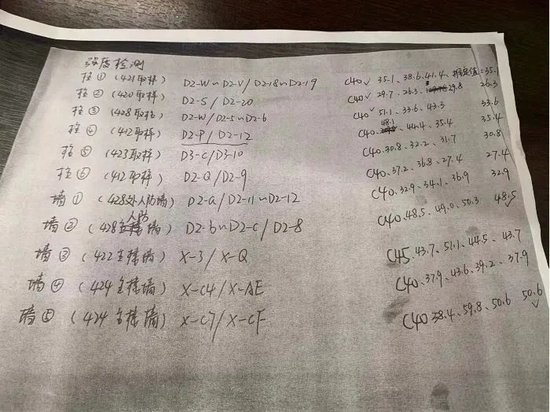 强度检测
柱① (421取样) D2-W~D2-V/D2-18~D2-19 C40✓ 35.1、38.6、41.4、推定值:35.1
柱② (420取样) D2-S/D2-20 C40✓ 29.7、26.3、29.8 26.3
柱③ (428取样) D2-W/D2-5~D2-6 C40✓ 51.1、33.6、43.3 33.6
柱④ (412取样) D2-P/D2-12 C40 48.1、44.4、35.4 35.4
柱⑤ (423取样) D3-C/D3-10 C40、30.8、32.2、31.7 30.8
柱⑥ (412取样) D2-Q/D2-9 C40、37.2、36.8、27.4 27.4
墙① (428外人防墙) D2-G/D2-11~D2-12 C40、32.9、34.1、36.9 32.9
墙② (428人防主楼墙) D2-B~D2-C/D2-8 C40、48.5、49.0、50.3 48.5
墙③ (422主楼墙) X-3/X-Q C45、43.7、51.1、44.5、43.7
墙④ (424主楼墙) X-C4/X-AE C40、37.9、43.6、39.2、37.9
墙⑤ (424主楼墙) X-C7/X-CF C40 38.4、59.8、50.6 50.6✓